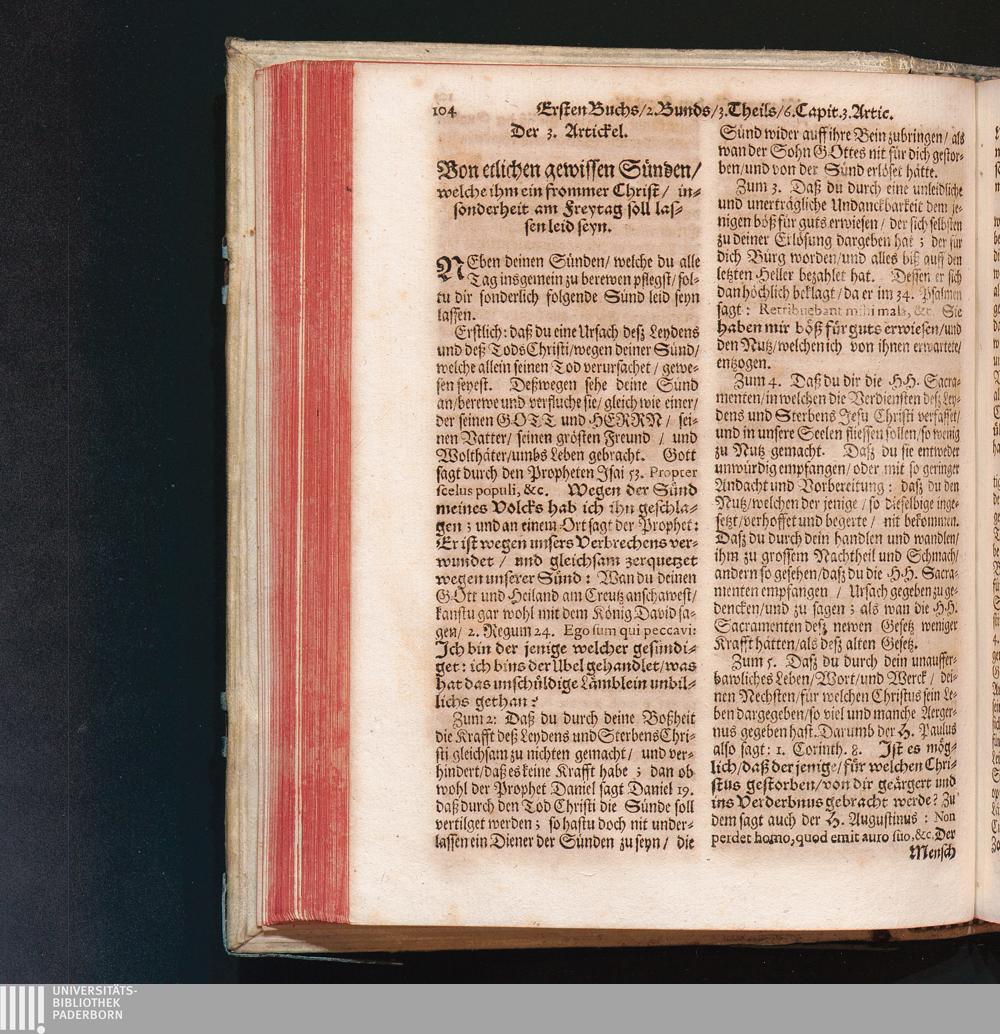 104 Ersten Buchs/2.Bunds/3.Theils/6.Capit.3.Artic.
Der 3. Artickel.
Von etlichen gewissen Sünden/
welche ihm ein frommer Christ / in-
sonderheit am Freytag soll las-
sen leid seyn.
NEben deinen Sünden/ welche du alle
Tag insgemein zu berewen pflegst/ sol-
tu dir sonderlich folgende Sünd leid seyn
lassen.
Erstlich: daß du eine Ursach deß Leydens
und deß Tods Christi/wegen deiner Sünd/
welche allein seinen Tod verursachet / gewe-
sen seyest. Deßwegen sehe deine Sünd
an/berewe und verfluche sie/ gleich wie einer/
der seinen GOTT und HERRN / sei-
nen Vatter/ seinen grösten Freund / und
Wolthäter/umbs Leben gebracht. Gott
sagt durch den Propheten Isai 53. Propter
scelus populi, &c. Wegen der Sünd
meines Volcks hab ich ihn geschla-
gen ; und an einem Ort sagt der Prophet:
Er ist wegen unsers Verbrechens ver-
wundet / und gleichsam zerquetzet
wegen unserer Sünd : Wan du deinen
GOtt und Heiland am Creutz anschawest/
kanstu gar wohl mit dem König David sa-
gen/ 2. Regum 24. Ego sum qui peccavi:
Ich bin der jenige welcher gesündi-
get : ich bins der Ubel gehandlet/was
hat das unschüldige Lämblein unbil-
lichs gethan?
Zum 2: Daß du durch deine Boßheit
die Krafft deß Leydens und Sterbens Chri-
sti gleichsam zu nichten gemacht/ und ver-
hindert/daß es keine Krafft habe ; dan ob
wohl der Prophet Daniel sagt Daniel 19.
daß durch den Tod Christi die Sünde soll
vertilget werden ; so hastu doch nit under-
lassen ein Diener der Sünden zu seyn/ die
Sünd wider auff ihre Bein zubringen/ als
wan der Sohn GOttes nit für dich gestor-
ben/und von der Sünd erlöset hätte.
Zum 3. Daß du durch eine unleidliche
und unerträgliche Undanckbarkeit dem je-
nigen böß für guts erwiesen/ der sich selbsten
zu deiner Erlösung dargeben hat ; der für
dich Bürg worden/und alles biß auff den
letzten Heller bezahlet hat. Dessen er sich
dan höchlich beklagt/da er im 34. Psalmen
sagt: Retribuebant mihi mala, &c. Sie
haben mir böß für guts erwiesen/und
den Nutz/welchen ich von ihnen erwartete/
entzogen.
Zum 4. Daß du dir die HH. Sacra-
menten/in welchen die Verdiensten deß Ley-
dens und Sterbens Jesu Christi verfasset/
und in unsere Seelen fliessen sollen/so wenig
zu Nutz gemacht. Daß du sie entweder
unwürdig empfangen/ oder mit so geringer
Andacht und Vorbereitung : daß du den
Nutz/welchen der jenige / so dieselbige inge-
setzt/verhoffet und begerte/ nit bekommen.
Daß du durch dein handlen und wandlen/
ihm zu grossem Nachtheil und Schmach/
andern so gesehen/daß du die HH. Sacra-
menten empfangen / Ursach gegeben zu ge-
dencken/und zu sagen ; als wan die HH.
Sacramenten deß newen Gesetz weniger
Krafft hätten/als deß alten Gesetz.
Zum 5. Daß du durch dein unauffer-
bawliches Leben/Wort/und Werck / dei-
nen Nechsten/für welchen Christus sein Le-
ben dargegeben/so viel und manche Aerger-
nus gegeben hast. Darumb der H. Paulus
also sagt: 1. Corinth. 8. Ist es mög-
lich/daß der jenige/für welchen Chri-
stus gestorben/von dir geärgert und
ins Verderbnus gebracht werde? Zu
dem sagt auch der H. Augustinus : Non
perdet homo, quod emit auro suo, &c. Der
Mensch
UNIVERSITÄTS-
BIBLIOTHEK
PADERBORN